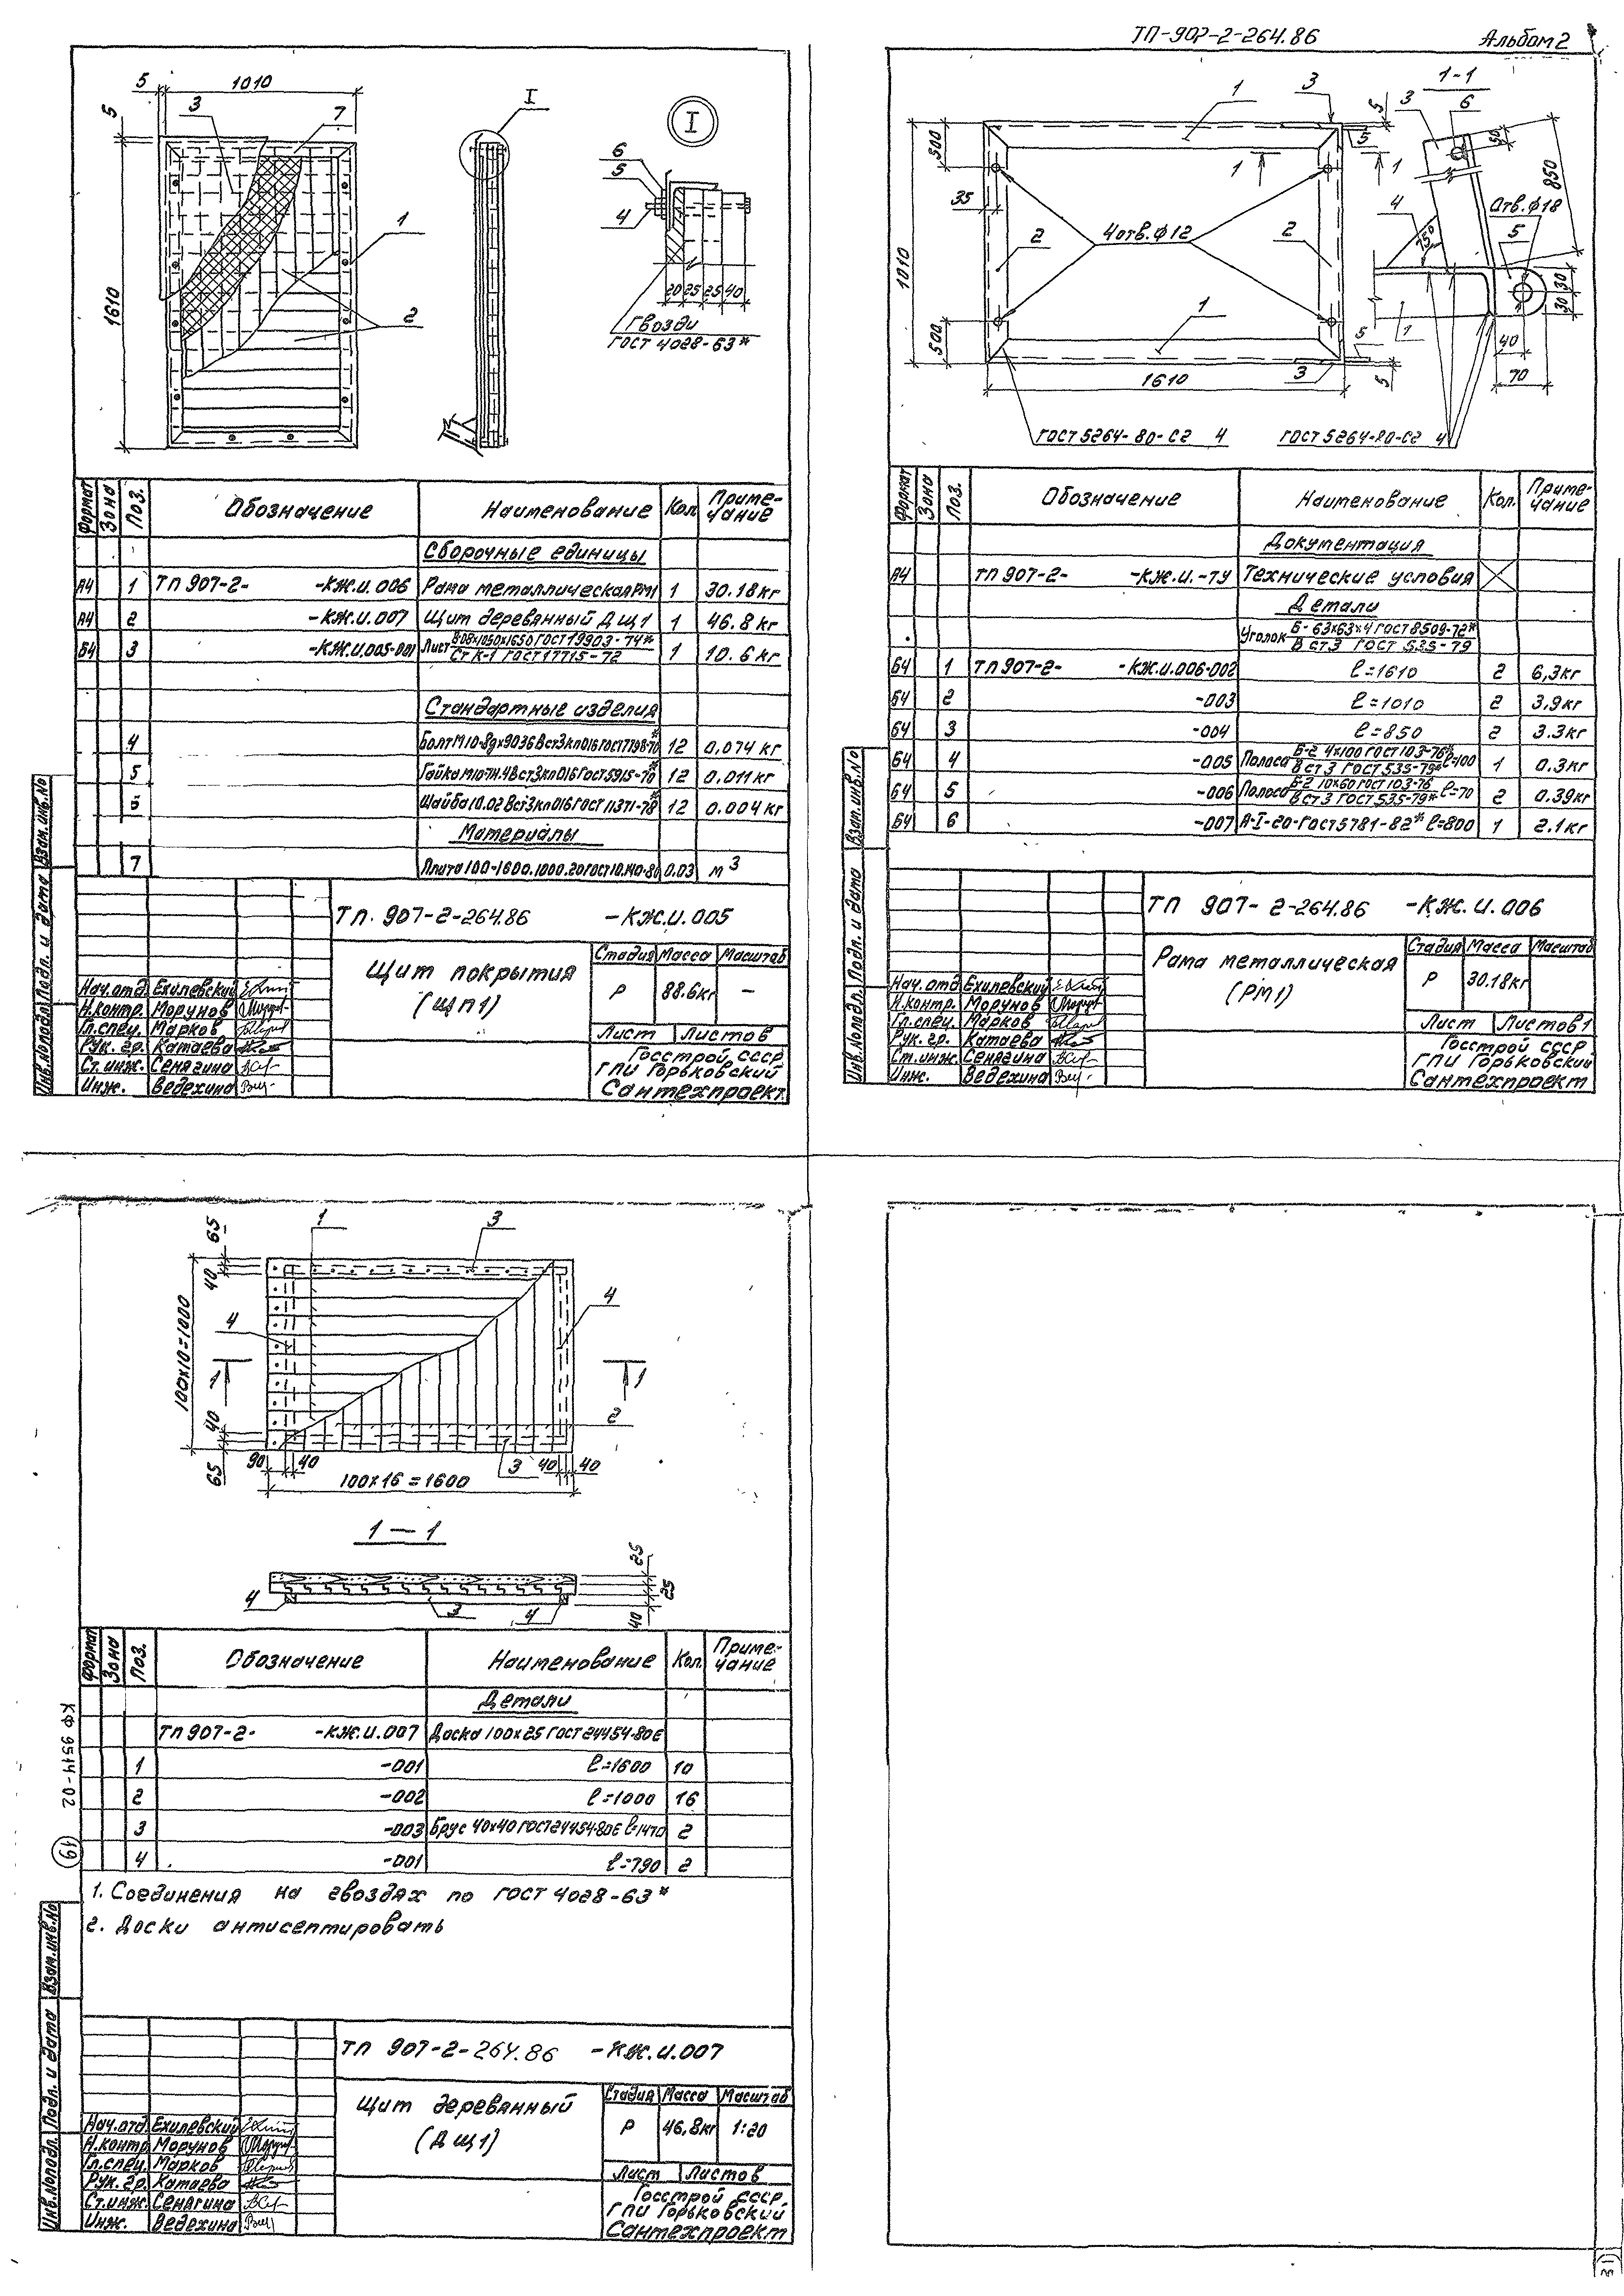 ТП-907-2-264.86 Альбом 2
5 1010
5
3
7
1
2
1610
I
I
6
5
4
20 25 25 40
Гвозди
ГОСТ 4028-63*
Формат Зона Поз. Обозначение Наименование Кол. Примечание
Сборочные единицы
А4 1 ТП 907-2- -КЖ.И.006 Рама металлическая РМ1 1 30.18кг
А4 2 -КЖ.И.007 Щит деревянный ДЩ1 1 46.8кг
Б4 3 -КЖ.И.005-001 Лист ГОСТ 19903-74* / Ст К-1 ГОСТ 17715-72 1 10.6кг
Стандартные изделия
4 Болт 12 0,074кг
5 Гайка ГОСТ 5915-70* 12 0,011кг
6 Шайба 10.02 ВСт3кп016 ГОСТ 11371-78* 12 0.004кг
Материалы
7 Плита 100-1600.1000.20 ГОСТ 10.140-80 0,03 м3
ТП. 907-2-264.86 -КЖ.И.005
Щит покрытия
(ЩП1)
Стадия Масса Масштаб
Р 88.6кг —
Лист Листов
Госстрой СССР
ГПИ Горьковский
Сантехпроект
Нач.отд. Ехилевский
Н.контр. Морунов
Гл.спец. Марков
Рук. гр. Катаева
Ст. инж. Сенягина
Инж. Ведехина
Инв.№подл. Подл. и дата Взам.инв.№
1 3 5
5
500
1 1
35
1010
2 4отв.Ф12 2
1
500
5
3
5
1610
ГОСТ 5264-80-С2 4
ГОСТ 5264-80-С2 4
1-1
3 6
50
850
4
Отв.Ф18
5
75°
30
30
1
40
70
Формат Зона Поз. Обозначение Наименование Кол. Примечание
Документация
А4 ТП 907-2- -КЖ.И.-ТУ Технические условия
Детали
Уголок Б-63х63х4 ГОСТ 8509-72* / В Ст3 ГОСТ 535-79
Б4 1 ТП 907-2- -КЖ.И.006-002 ℓ=1610 2 6,3кг
Б4 2 -003 ℓ=1010 2 3,9кг
Б4 3 -004 ℓ=850 2 3.3кг
Б4 4 -005 Полоса Б-2 4х100 ГОСТ 103-76* / В Ст3 ГОСТ 535-79* ℓ=100 1 0.3кг
Б4 5 -006 Полоса Б-2 10х60 ГОСТ 103-76 / В Ст3 ГОСТ 535-79* ℓ=70 2 0.39кг
Б4 6 -007 А-I-20-ГОСТ 5781-82* ℓ=800 1 2.1кг
ТП 907-2-264.86 -КЖ.И.006
Рама металлическая
(РМ1)
Стадия Масса Масштаб
Р 30.18кг
Лист Листов 1
Госстрой СССР
ГПИ Горьковский
Сантехпроект
Нач.отд. Ехилевский
Н.контр. Морунов
Гл.спец. Марков
Рук. гр. Катаева
Ст.инж. Сенягина
Инж. Ведехина
Инв.№подл. Подл. и дата Взам.инв.№
65
40
1 3
4
4
100х10=1000
1 1
2
40
65
90 40
3
40 40
100х16=1600
1—1
25
25
40
4 3 4
Формат Зона Поз. Обозначение Наименование Кол. Примечание
Детали
ТП 907-2- -КЖ.И.007 Доска 100х25 ГОСТ 24454-80Е
1 -001 ℓ=1600 10
2 -002 ℓ=1000 16
3 -003 Брус 40х40 ГОСТ 24454-80Е ℓ=1470 2
4 -001 ℓ=790 2
1. Соединения на гвоздях по ГОСТ 4028-63*
2. Доски антисептировать
КФ 9514-02 19
ТП 907-2-264.86 -КЖ.И.007
Щит деревянный
(ДЩ1)
Стадия Масса Масштаб
Р 46,8кг 1:20
Лист Листов
Госстрой СССР
ГПИ Горьковский
Сантехпроект
Нач.отд. Ехилевский
Н.контр. Морунов
Гл.спец. Марков
Рук. гр. Катаева
Ст.инж. Сенягина
Инж. Ведехина
Инв.№подл. Подл. и дата Взам.инв.№